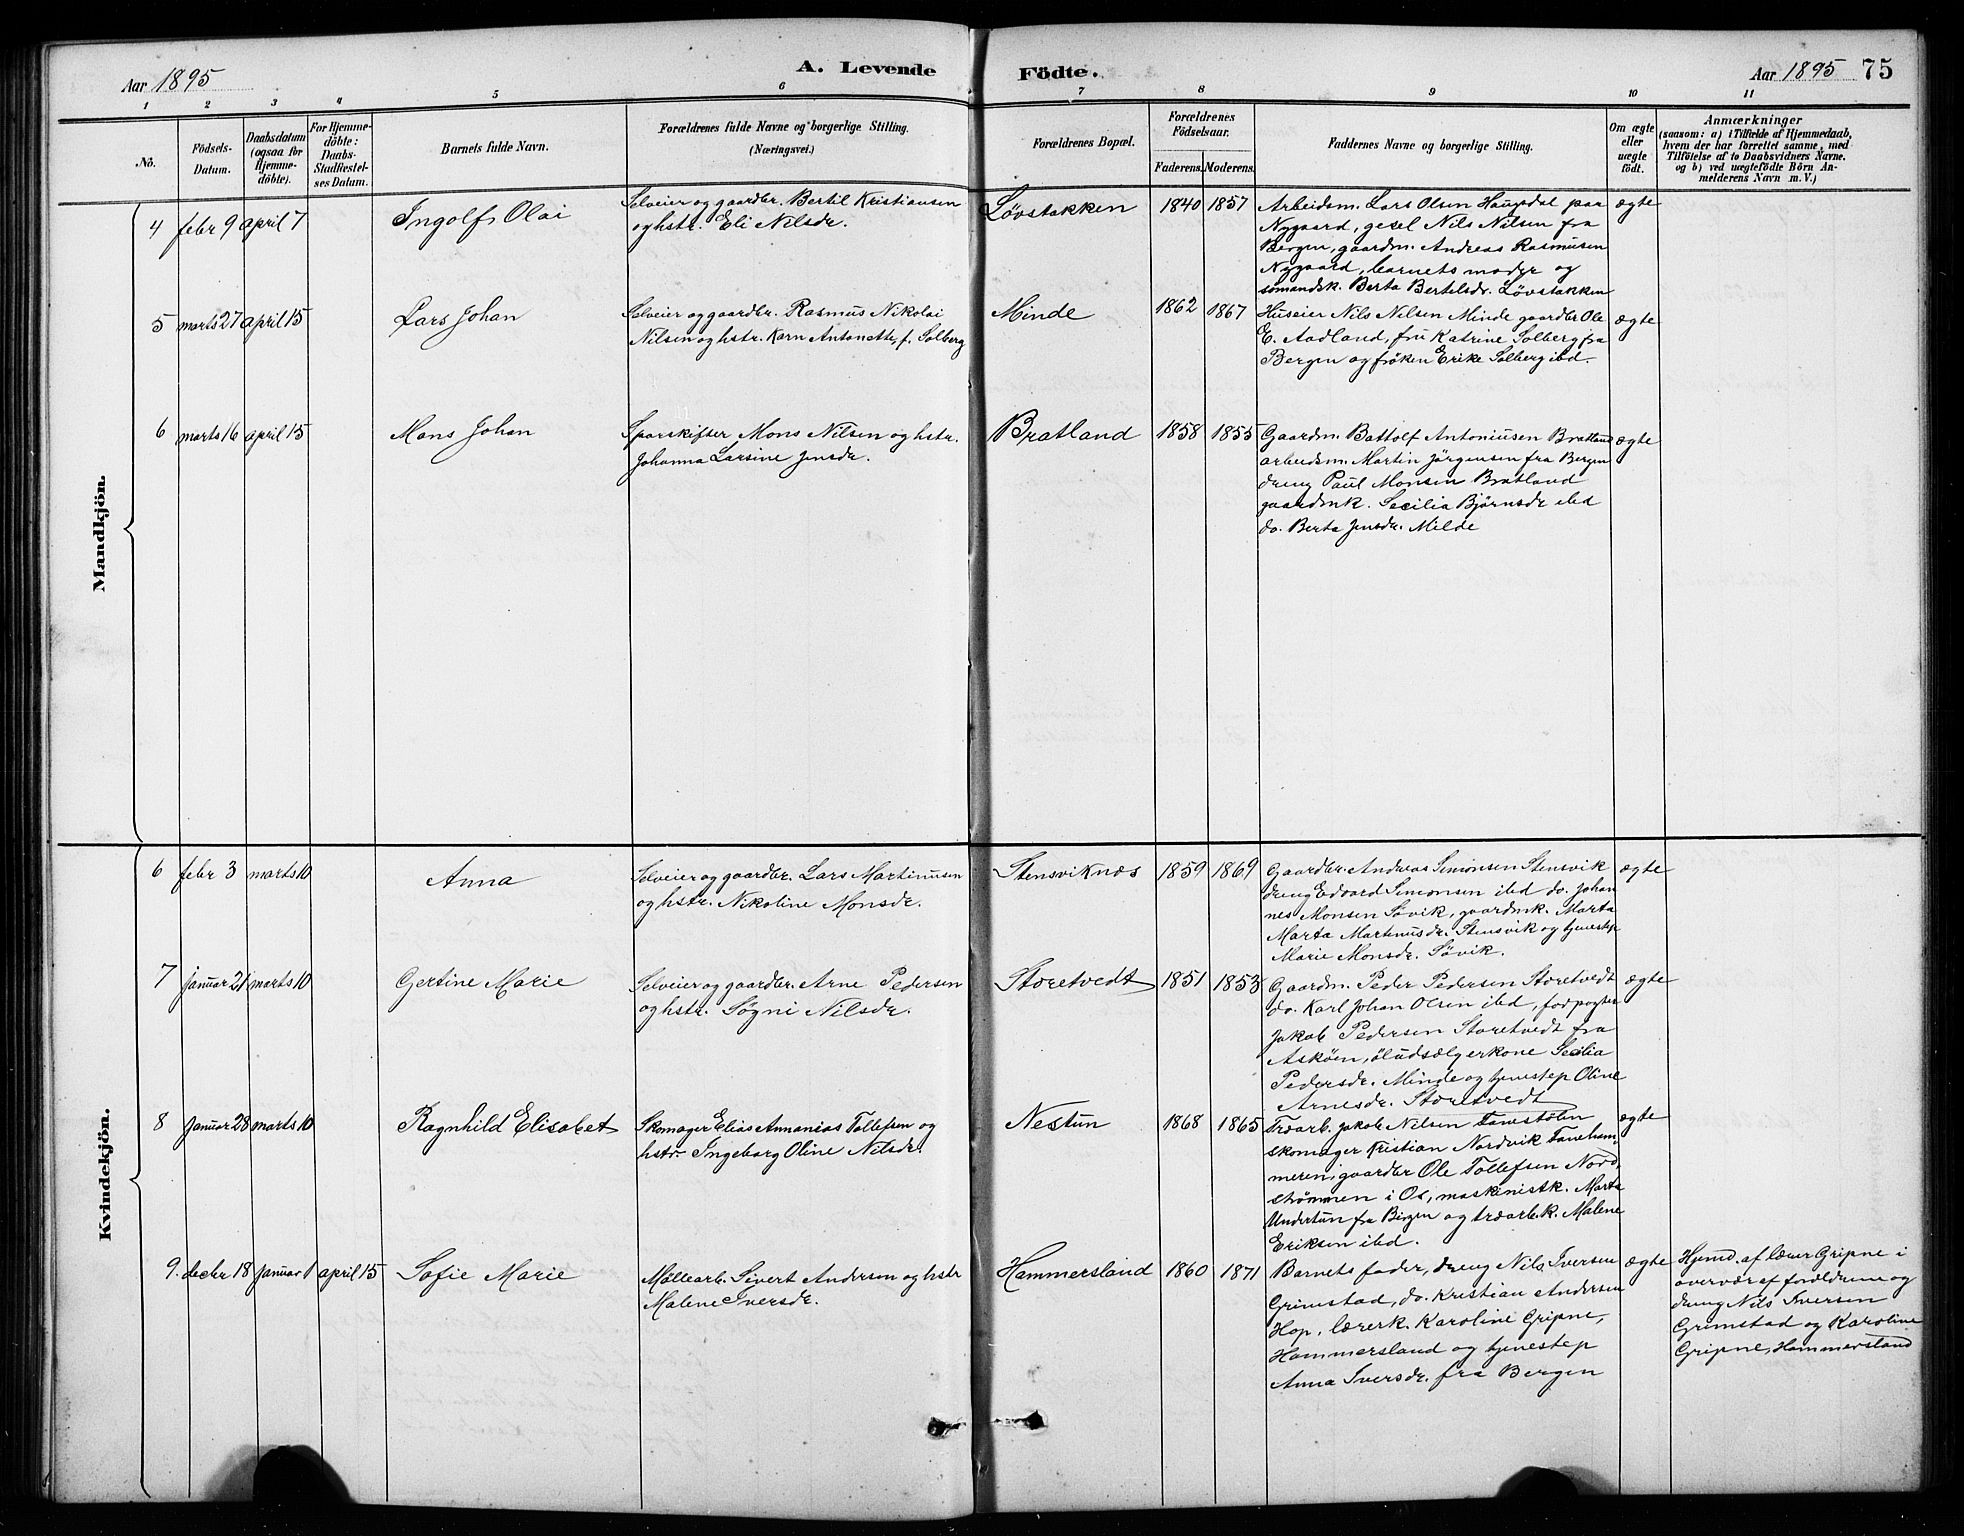 Aar 1895
A. Levende
Födte.
Aar 1895
75
1 2 3 4 5 6 7 8 9 10 11
No.
Födsels-
Datum.
Daabsdatum
(ogsaa for
Hjemme-
döbte).
For Hjemme-
döbte:
Daabs-
Stadfæstel-
ses Datum.
Barnets fulde Navn.
Forældrenes fulde Navne og borgerlige Stilling.
(Næringsvei.)
Forældrenes Bopæl.
Forældrenes
Födselsaar.
Faderens. Moderens.
Faddernes Navne og borgerlige Stilling.
Om ægte
eller
uægte
födt.
Anmærkninger
(saasom: a) i Tilfælde af Hjemmedaab,
hvem der har forrettet samme, med
Tilföielse af to Daabsvidners Navne.
og b) ved uægtefödte Börn An-
melderens Navn m. V.)
Mandkjön.
4 febr 9 april 7
Ingolf Olai
Selveier og gaardbr. Bertil Kristiansen
og hstr. Eli Nilsdr.
Løvstakken
1840 1857
Arbeidsm. Lars Olsen Haupdal paa
Nygaard, gesel Nils Nilsen fra
Bergen, gaardm. Andreas Rasmusen
Nygaard, barnets moder og
sömandsk. Berta Bertelsdr. Løvstakken
ægte
5 marts 27 april 15
Lars Johan
Selveier og gaardbr. Rasmus Nikolai
Nilsen og hstr. Karn Antonette, f. Solberg
Minde
1862 1867
Huseier Nils Nilsen Minde gaardbr Ole
E. Aadland, fru Katrine Solberg fra
Bergen og frøken Erike Solberg ibd.
ægte
6 marts 16 april 15
Mons Johan
Sporskifter Mons Nilsen og hstr.
Johanna Larsine Jensdr.
Bratland
1858 1855
Gaardm. Battolf Antoniusen Bratland
arbeidsm. Martin Jörgensen fra Bergen
dreng Paul Monsen Bratland
gaardmk. Secilia Bjørnsdr ibd
do. Berta Jensdr. Milde
ægte
Kvindekjön.
6 febr 3 marts 10
Anna
Selveier og gaardbr. Lars Martinusen
og hstr. Nikoline Monsdr.
Stensviknæs
1859 1869
Gaardbr. Andreas Simonsen Stensvik
dreng Edvard Simonsen ibd do. Johan
nes Monsen Søvik, gaardmk. Marta
Marta Martinusdr. Stensvik og tjenestep
Marie Monsdr. Søvik.
ægte
7 januar 21 marts 10
Gertine Marie
Selveier og gaardbr. Arne Pedersen
og hstr. Søgni Nilsdr.
Storetvedt
1851 1853
Gaardm. Peder Pedersen Storetvedt
do. Karl Johan Olsen ibd, forpagter
Jakob Pedersen Storetvedt fra
Askøen, öludsælgerkone Secilia
Pedersdr. Minde og tjenestep Oline
Arnesdr. Storetvedt
ægte
8 januar 28 marts 10
Ragnhild Elisabet
Skomager Elias Annanias Tollefsen og
hstr. Ingeborg Oline Nilsdr.
Nestun
1868 1865
Træarb. Jakob Nilsen Fanestølen
skomager Kristian Nordvik Faneham-
meren, gaardbr Ole Tollefsen Nord-
strømmen i Os, maskinistk. Marta
Undertun fra Bergen og træarb.k. Malene
Eriksen ibd.
ægte
9. decbr 18 januar 1 april 15
Sofie Marie
Møllearb. Sivert Andersen og hstr
Malene Iversdr.
Hammersland
1860 1871
Barnets fader, dreng Nils Iversen
Grimstad, do. Kristian Andersen
Hop, lærerk. Karoline Gripne,
Hammersland og tjenestep
Anna Iversdr. fra Bergen
ægte
Hjemd. af lærer Gripne i
overvær af forældrene og
dreng Nils Iversen
Grimstad og Karoline
Gripne, Hammersland